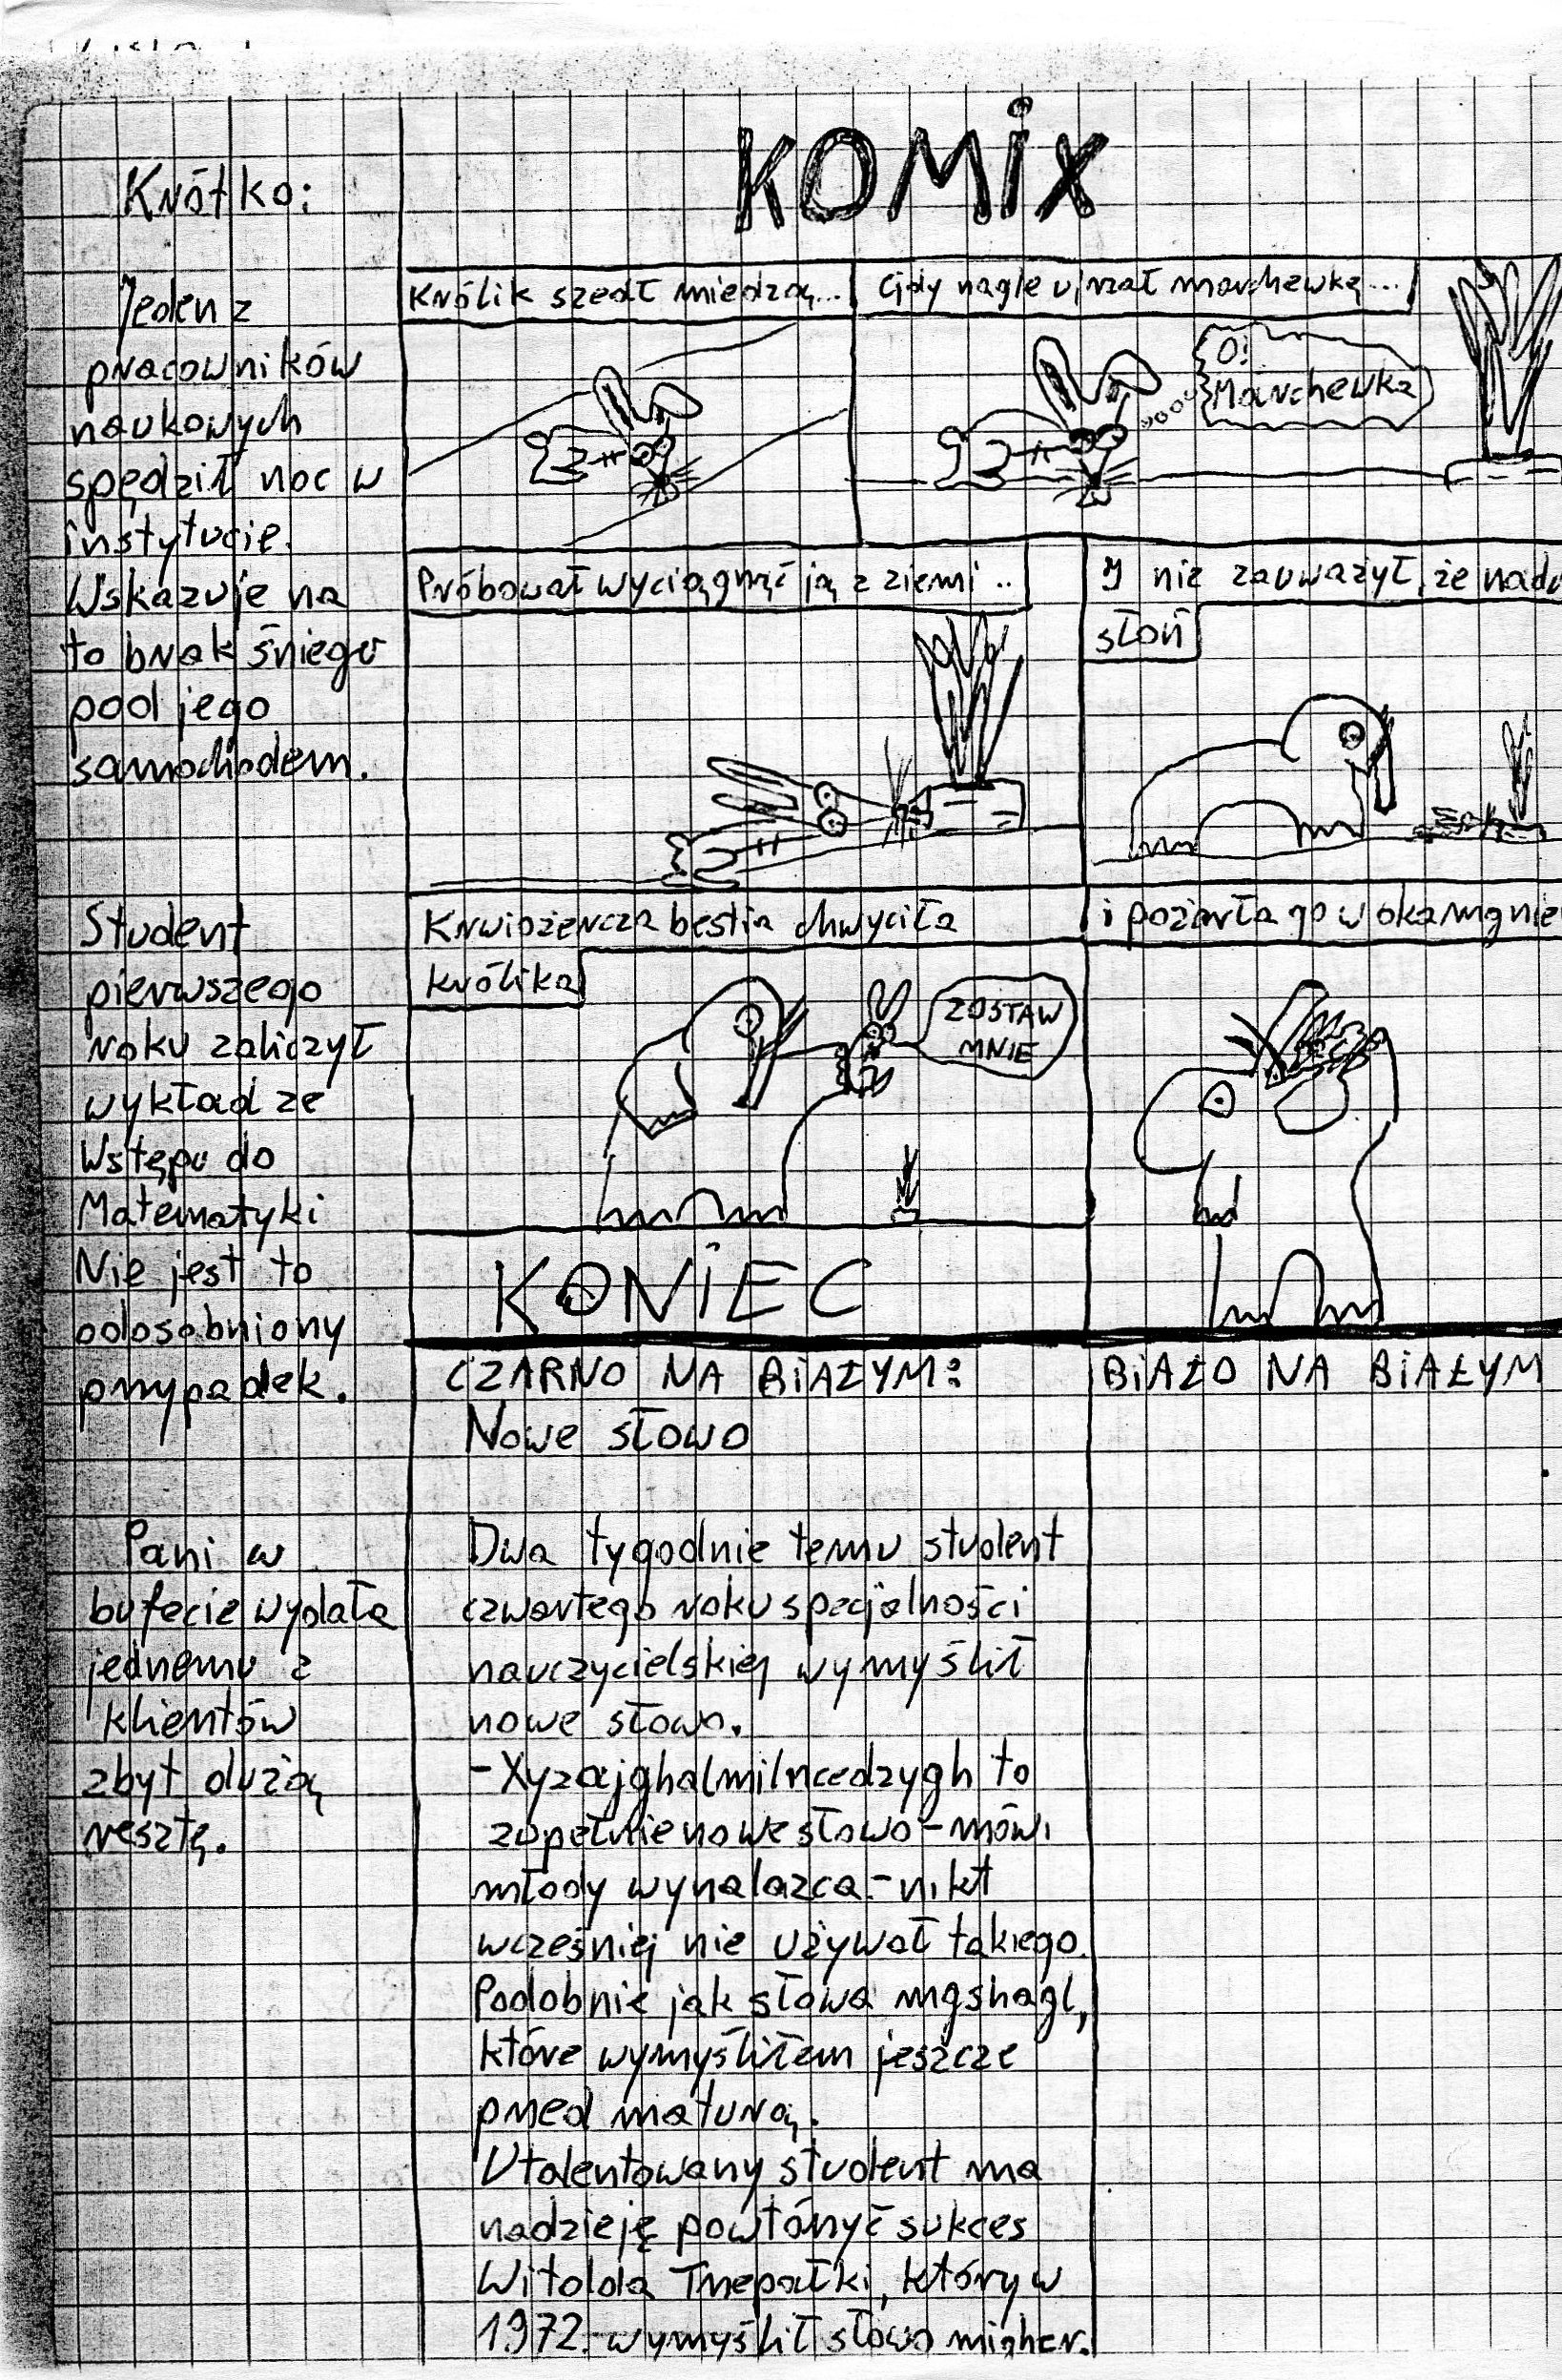 Krótko:
Jeden z
pracowników
naukowych
spędził noc w
instytucie.
Wskazuje na
to brak śniegu
pod jego
samochodem.
Student
pierwszego
roku zaliczył
wykład ze
Wstępu do
Matematyki
Nie jest to
odosobniony
przypadek.
Pani w
bufecie wydała
jednemu z
klientów
zbyt dużą
resztę.
KOMiX
Królik szedł miedzą...
Gdy nagle ujrzał marchewkę...
O!
Marchewka
Próbował wyciągnąć ją z ziemi ..
I nie zauważył, że
słoń
Krwiożercza bestia chwyciła
królika
ZOSTAW
MNIE
i pożarła go w
KONIEC
CZARNO NA BiAŁYM:
Nowe słowo
Dwa tygodnie temu student
czwartego roku specjalności
nauczycielskiej wymyślił
nowe słowo.
- Xyzajghalmilncedzygh to
zupełnie nowe słowo - mówi
młody wynalazca - nikt
wcześniej nie używał takiego.
Podobnie jak słowa mgshagl,
które wymyśliłem jeszcze
przed maturą.
Utalentowany student ma
nadzieję powtórzyć sukces
Witolda Trzepałki, który w
1972 wymyślił słowo migher.
BiAŁO NA BiAŁYM